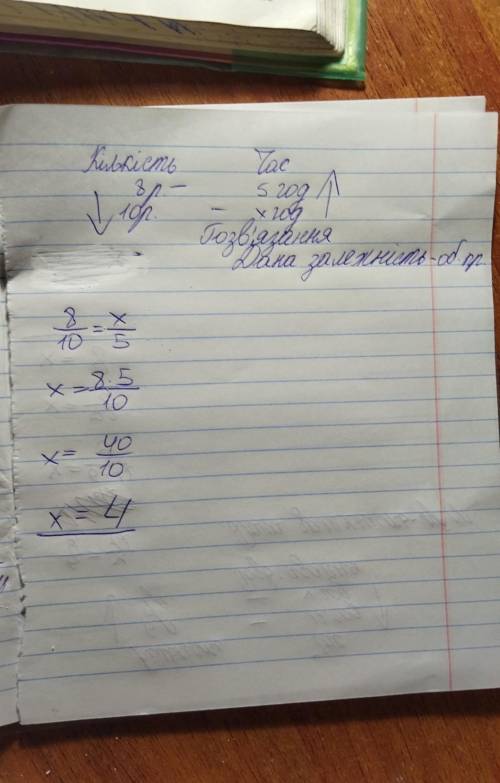 Кількість Час
8р – 5 год
10р. – х год
Розв'язання
Дана залежність - об пр
8/10 = x/5
x = 8·5/10
x = 40/10
x = 4